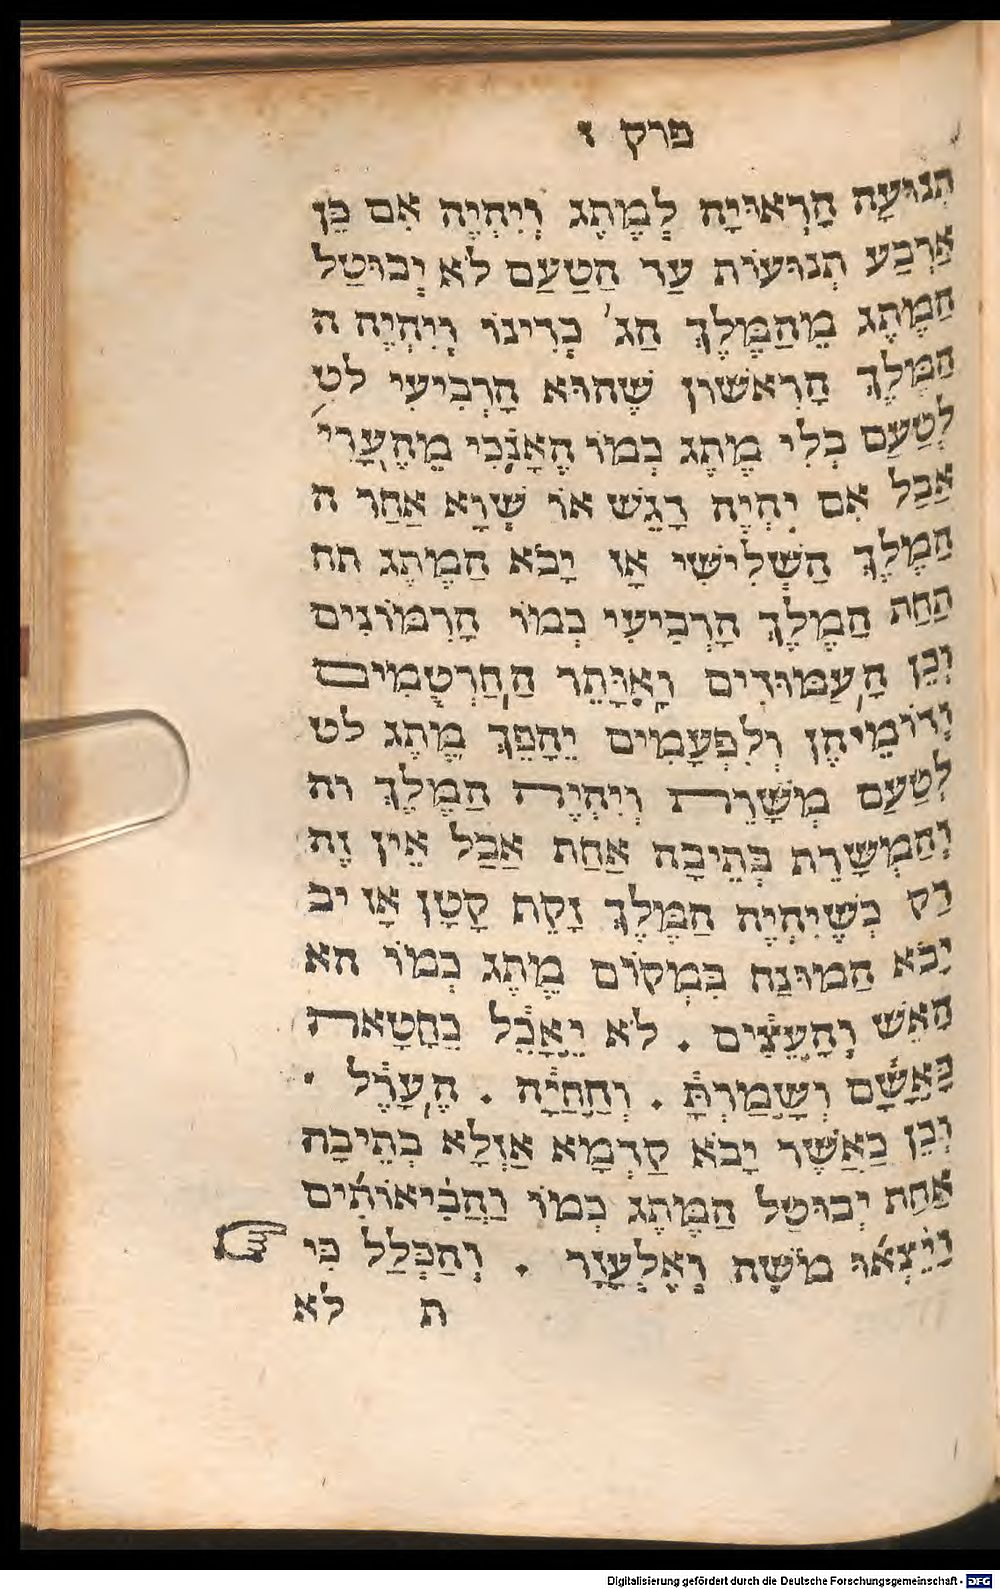 פרק ו
תְנוּעָה הָרְאוּיָה לְמֶתֶג וְיִהְיֶה אִם כֵּן
אַרְבַּע תְנוּעוֹת עַד הַטַעַם לֹא יְבוּטַל
הַמֶתֶג מֵהַמֶלֶךְ הַג׳ כְּדִינוֹ וְיִהְיֶה ה
הַמֶּלֶךְ הָרִאשׁוֹן שֶׁהוּא הָרְבִיעִי לט
לְטַעַם בְּלִי מֶתֶג כְּמוֹ הֶאָנֹכִי מֵהֶעָרִי׳
אֲבָל אִם יִהְיֶה דָגֵשׁ אוֹ שְׁוָא אַחַר ה
הַמֶלֶךְ הַשְׁלִישִׁי אָז יָבֹא הַמֶתֶג תח
תַּחַת הַמֶלֶךְ הָרְבִיעִי כְּמוֹ הָרִמּוֹנִים
וְכֵן הָעַמּוּדִים וָאִוָּתֵר הַחַרְטֻמִים
וְדוֹמֵיהֶן וְלִפְעָמִים יֵהָפֵךְ מֶתֶג לט
לְטַעַם מְשָׁרֵת וְיִהְיֶה הַמֶלֶךְ וה
וְהַמְשָׁרֵת בְּתֵיבָה אַחַת אֲבָל אֵין זֶה
רַק כְּשֶׁיִהְיֶה הַמֶּלֶךְ זָקֵף קָטָן אָז יב
יָבֹא הַמוּנַח בִּמְקוֹם מֶתֶג כְּמוֹ הא
הָאֵשׁ וְהָעֵצִים . לֹא יֵאָכֵל כַּחַטָאת
כָּאָשָׁם וְשָׁמַרְתָּ . וְהַחַיָּה . הֶעָרֵל .
וְכֵן כַּאֲשֶׁר יָבֹא קַדְמָא אַזְלָא בְּתֵיבָה
אַחַת יְבוּטַל הַמֶּתֶג כְּמוֹ וַהֲבִיאוֹתִים
וַיֵּצְאוּ מֹשֶׁה וְאֶלְעָזָר . וְהַכְּלַל כִּי
ת לא
Digitalisierung gefördert durch die Deutsche Forschungsgemeinschaft - DFG